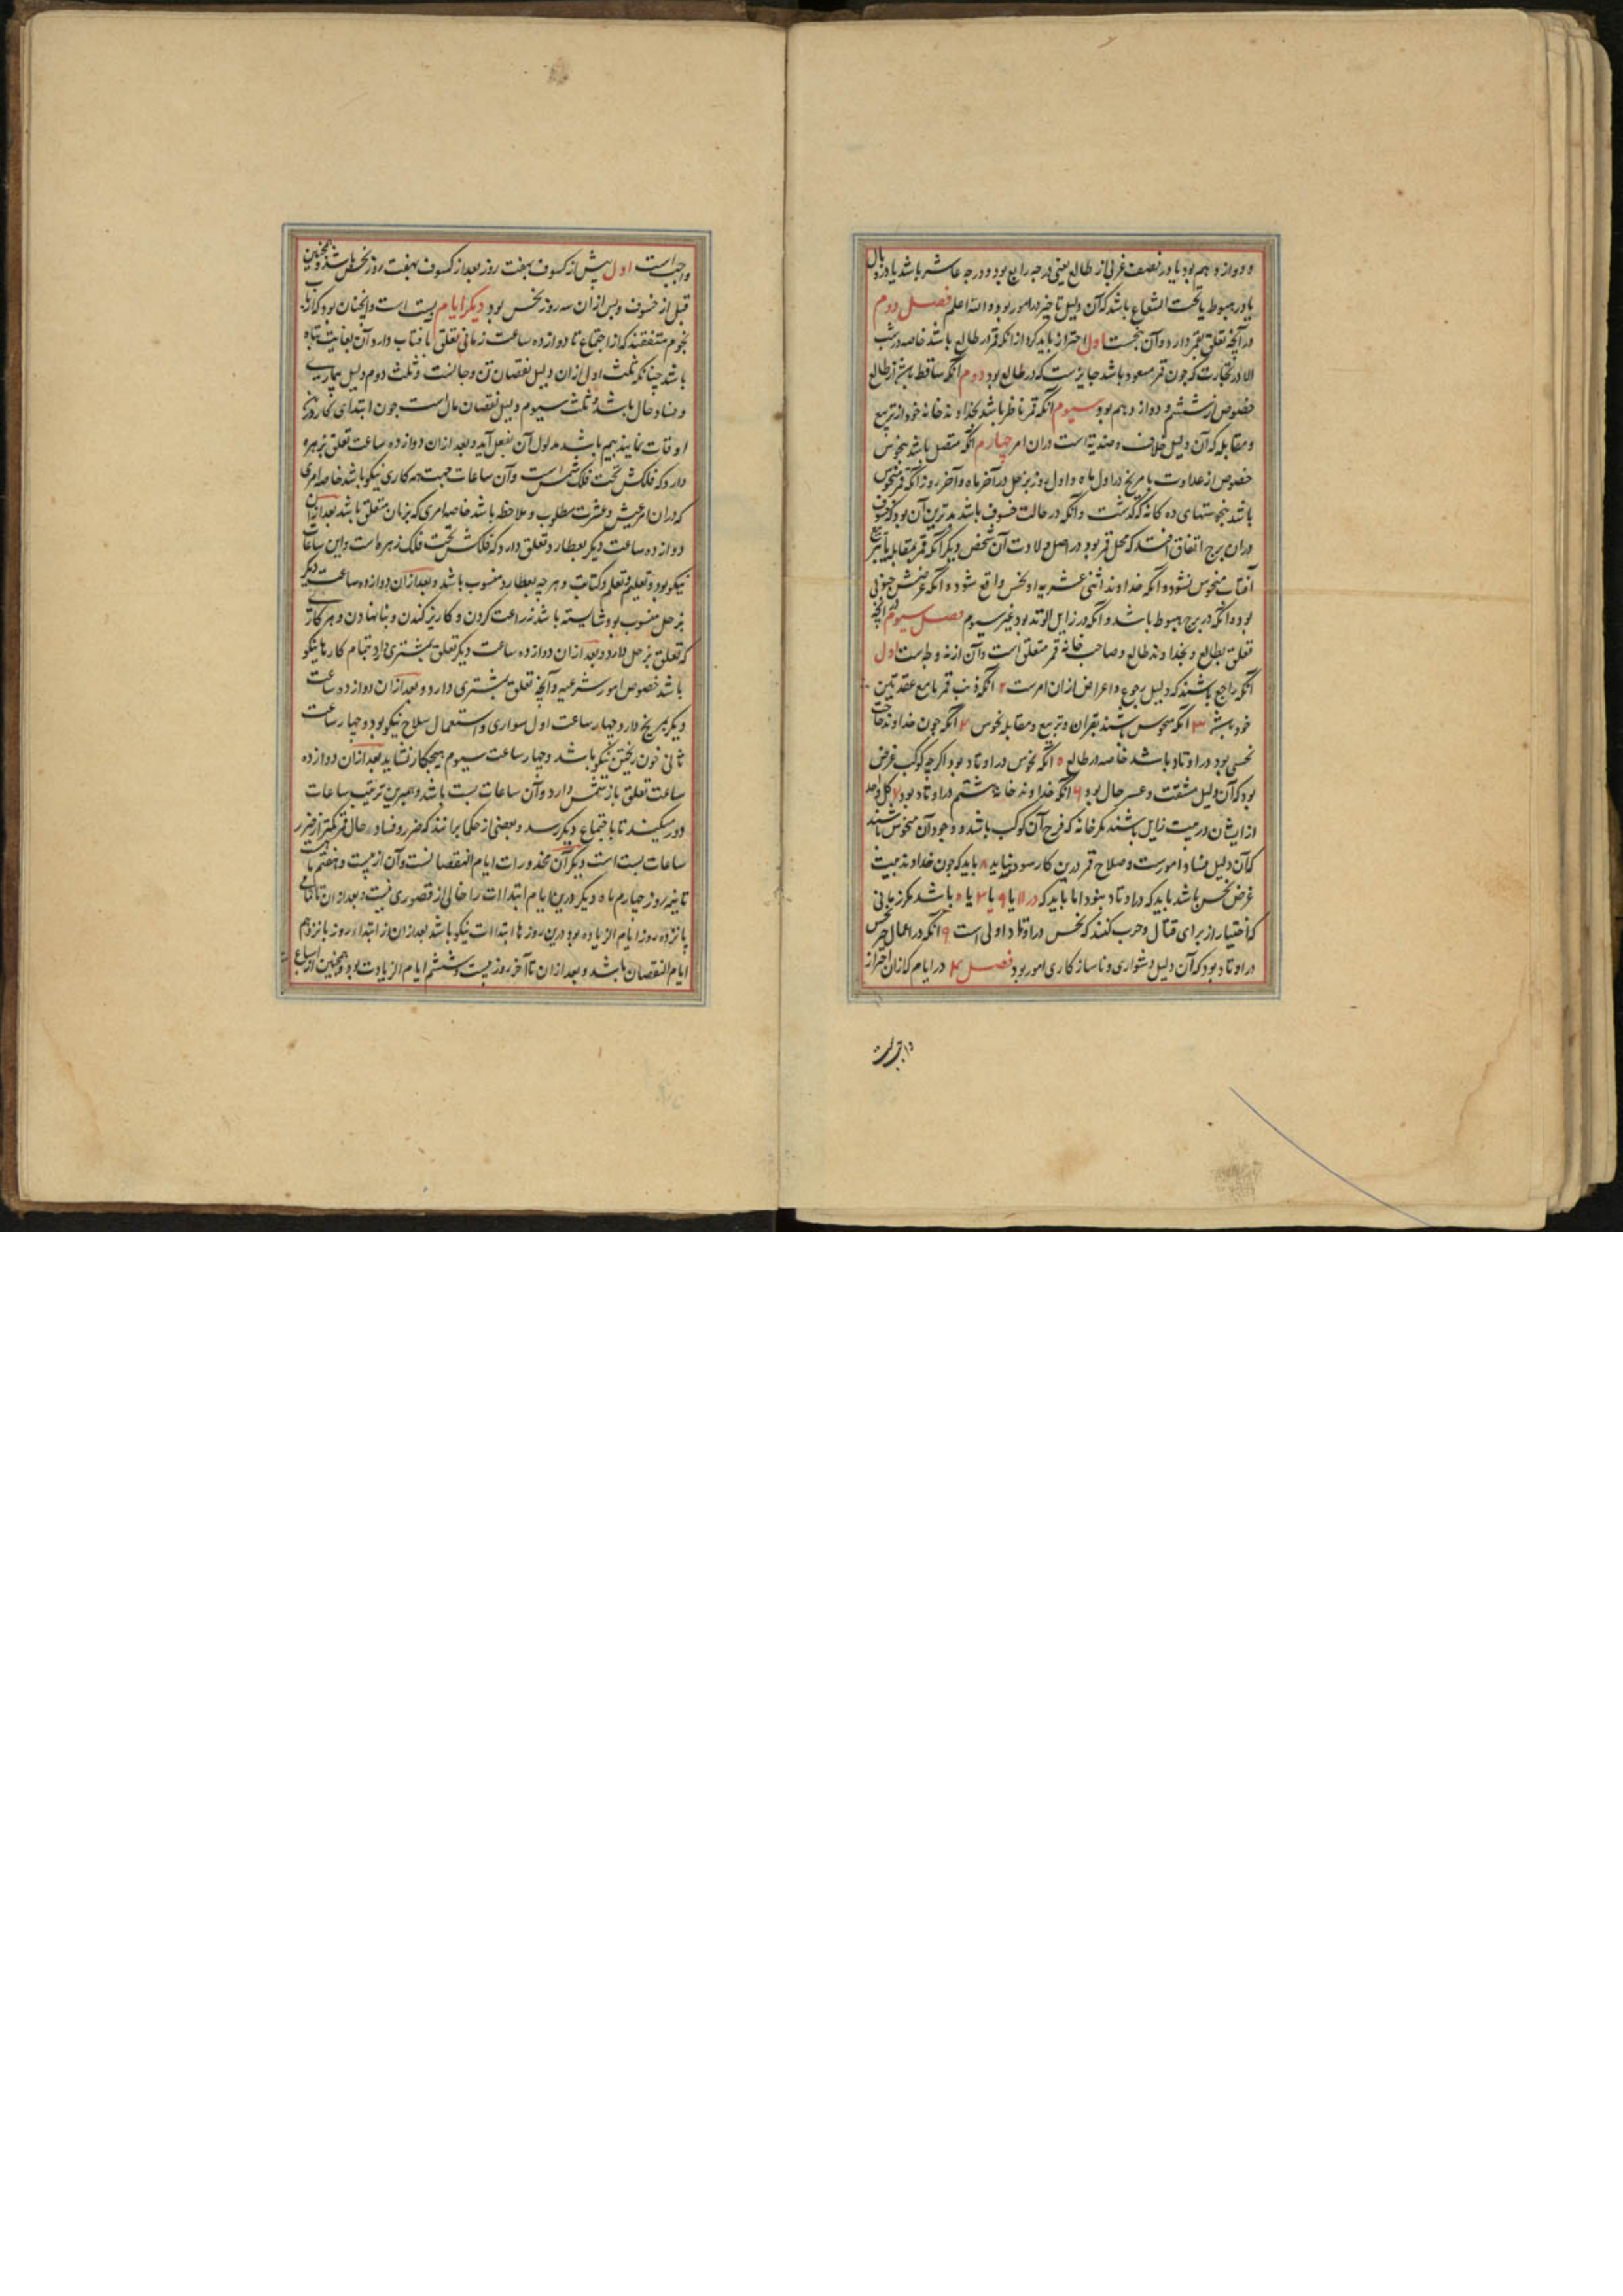 و دوازدهم بود یا در نصف غربی از طالع یعنی درجه رابع بود و درجه عاشر باشد یا در وبال
یا در هبوط یا تحت الشعاع باشد که آن دلیل تاخیر در امور بود والله اعلم فصل دوم
در آنچه تعلق بقمر دارد و آن پنجست اول احتراز باید کرد از انکه قمر در طالع باشد خاصه در شب
الا در تجارت که چون قمر مسعود باشد جایز ست که در طالع بود دوم آنکه ساقط باشد از طالع
خصوص از ششم و دوازدهم بود سیوم آنکه قمر ناظر باشد بخداوند خانه خود از تربیع
و مقابله که آن دلیل خلاف و ضدیة است دران امر چهارم آنکه متصل باشد بنحوس
خصوص از عداوت با مریخ در اول ماه و اول روز بزحل در آخر ماه و آخر روز آنکه قمر منحوس
باشد بنحوستهای ده کانه که گذشت و آنکه در حالت خسوف باشد بدترین آن بود که خسوف
دران برج اتفاق افتد که محل قمر بود در اصل ولادت آن شخص دیگر آنکه قمر بمقابله یا تربیع
آفتاب منحوس نشود و آنکه خداوند اثنی عشریه او نحس واقع شود و آنکه عرضش جنوبی
بود و آنکه در برج هبوط باشد و آنکه در زایل الوتد بود غیر سیوم فصل سیوم در آنچه
تعلق بطالع و بخداوند طالع و صاحب خانه قمر متعلق است و آن از نه وجه است اول
آنکه راجع باشند که دلیل رجوع و اعراض ازان امرست ۲ آنکه ذنب قمر با مع عقدتین
خود باشد ۳ آنکه منحوس باشند بقران و تربیع و مقابله نحوس ۴ آنکه چون خداوند حاجت
نحسی بود در اوتاد باشد خاصه در طالع ۵ آنکه نحوس در اوتاد بود اگر چه کوکب غرض
بود که آن دلیل مشقت و عسر حال بود ۶ آنکه خداوند خانه ششم در اوتاد بود ۷ کل واحد
از ایشان در بیت زایل باشند مگر خانه که فرح آن کوکب باشد و وجود آن منحوس باشند
که آن دلیل فساد امورست و صلاح قمر درین کار سود ننماید ۸ باید که چون خداوند بیت
غرض نحس باشد باید که در اوتاد نبود اما باید که در ۱۱ یا ۹ یا ۳ یا ۵ باشد مگر زمانی
که اختیار از برای قتال و حرب کنند که نحس در اوتاد اولی است ۹ آنکه در اعمال نحس
در اوتاد بود که آن دلیل دشواری و ناسازکاری امور بود فصل ۴ در ایام که ازان احتراز
واجبست
واجبست اول پیش از کسوف بهفت روز بعد از کسوف بهفت روز نحس باشد و همچنین
قبل از خسوف و پس ازان سه روز نحس بود دیگر ایام بیست است و آنچنان بود که ارباب
نجوم متفقند که از اجتماع تا دوازده ساعت زمانی تعلق بآفتاب دارد و آن بغایت تباه
باشد چنانکه ثلث اول ازان دلیل نقصان تن و جانست و ثلث دوم دلیل بیماری
و فساد حال باشد و ثلث سیوم دلیل نقصان مال است چون ابتدای کار درین
اوقات نمایند بیم باشد مدلول آن بفعل آید و بعد ازان دوازده ساعت تعلق بزهره
دارد که فلکش تحت فلک شمس است و آن ساعات جهت همه کاری نیکو باشد خاصه امری
که دران امر عیش و عشرت مطلوب و ملاحظ باشد خاصه امری که بزنان متعلق باشد بعد ازان
دوازده ساعت دیگر بعطارد تعلق دارد که فلکش تحت فلک زهره است و این ساعات
نیکو بود و تعلیم و تعلم و کتابت و هر چه بعطارد منسوب باشد و بعد ازان دوازده ساعت دیگر
بزحل منسوب بود شایسته باشد زراعت کردن و کاریز کندن و بنا نهادن و هر کاری
که تعلق بزحل دارد و بعد ازان دوازده ساعت دیگر تعلق بمشتری دارد تمام کارها نیکو
باشد خصوص امور شرعیه و آنچه تعلق بمشتری دارد و بعد ازان دوازده ساعت
دیگر بمریخ دارد چهار ساعت اول سواری و استعمال سلاح نیکو بود و چهار ساعت
ثانی خون ریختن نیکو باشد و چهار ساعت سیوم هیچکار نشاید بعد ازان دوازده
ساعت تعلق باز بشمس دارد و آن ساعات بست باشد و همبرین ترتیب ساعات
دور میکنند تا باجتماع دیگر رسد و بعضی از حکما برانند که ضرر و فساد حال قمر کمتر از ضرر
ساعات بست است دیگر آن محذورات ایام النقصانست و آن از بیست و هفتم باشد
تا نیمه روز چهارم ماه دیگر درین ایام ابتداات را خالی از قصوری نیست و بعد ازان تا تمامی
پانزده روز ایام الزیاده بود درین روزها ابتداات نیکو باشد بعد ازان از ابتدا روز پانزدهم
ایام النقصان باشد و بعد ازان تا آخر روز بیست و ششم ایام الزیادت بود و همچنین از اسباع